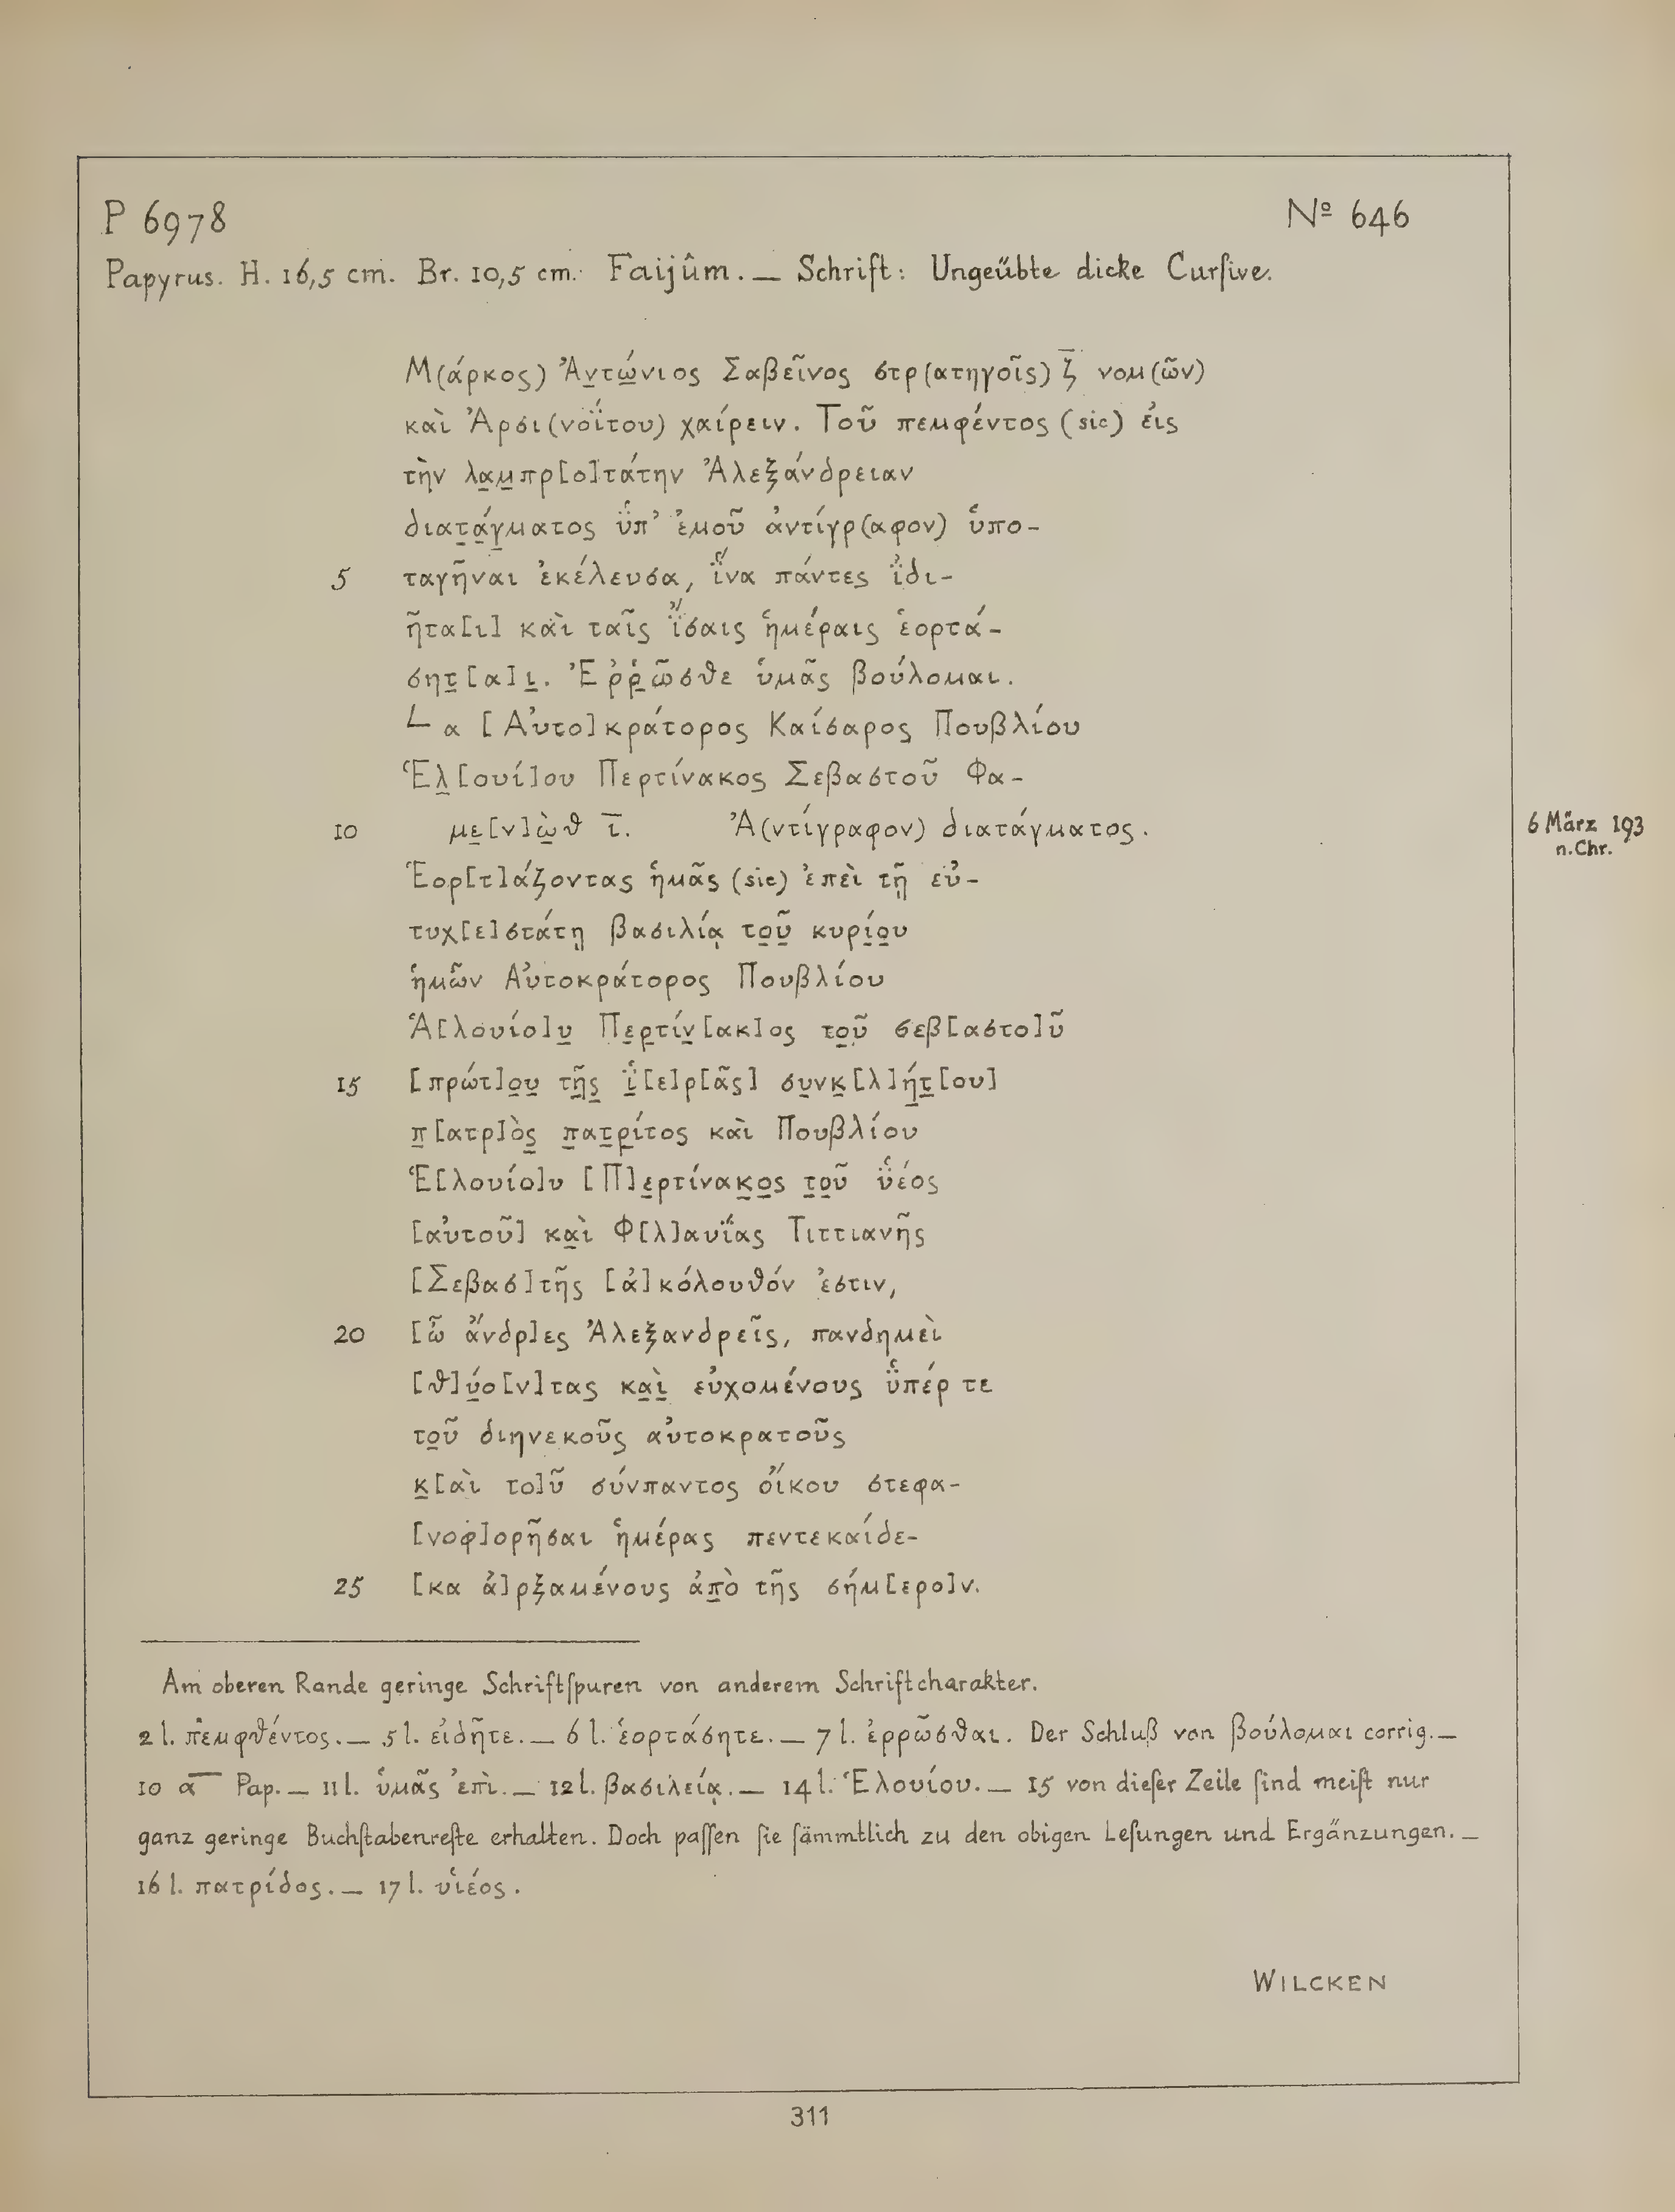 P 6978 Nº 646
Papyrus. H. 16,5 cm. Br. 10,5 cm. Faijûm. — Schrift: Ungeübte dicke Curſive.
Μ(άρκος) Ἀν̣τώ̣νιος Σαβεῖνος στρ(ατηγοῖς) ζ̅ νομ(ῶν)
καὶ Ἀρσι(νοΐτου) χαίρειν. Τοῦ πεμφέντος (sic) εἰς
τὴν λα̣μ̣πρ[ο]τάτην Ἀλεξάνδρειαν
διατ̣ά̣γ̣ματος ὑ̈π' ἐμοῦ ἀντίγρ(αφον) ὑπο-
5 ταγῆναι ἐκέλευσα, ἵ̈να πάντες ἰ̈δι-
ῆτα[ι] καὶ ταῖς ἴ̈σαις ἡμέραις ἑορτά-
σητ̣[α]ι̣. Ἐρρ̣ῶσθε ὑμᾶς βούλομαι.
∟ α [Αὐτο]κράτορος Καίσαρος Πουβλίου
Ἑλ̣[ουί]ου Περτίνακος Σεβαστοῦ Φα-
10 με̣[ν]ὼ̣θ ι̅. Ἀ(ντίγραφον) διατάγματος.
6 März 193
n. Chr.
Ἑορ[τ]άζοντας ἡμᾶς (sic) ἐπεὶ τῇ εὐ-
τυχ[ε]στάτῃ βασιλίᾳ το̣ῦ̣ κυρί̣ο̣υ
ἡμῶν Αὐτοκράτορος Πουβλίου
Ἁ[λουίο]υ̣ Πε̣ρ̣τίν̣[ακ]ος το̣ῦ σεβ[αστο]ῦ
15 [πρώτ]ο̣υ̣ τῆ̣ς̣ ἱ̣̈[ε]ρ[ᾶς] συ̣νκ̣[λ]ή̣τ̣[ου]
π̣[ατρ]ὸς̣ π̣ατ̣ρ̣ίτος καὶ Πουβλίου
Ἑ[λουίο]υ [Π]ε̣ρτίνακ̣ο̣ς τ̣ο̣ῦ ὑ̈έος
[αὐτοῦ] κα̣ὶ Φ[λ]αυΐας Τιττιανῆς
[Σεβασ]τῆς [ἀ]κόλουθόν ἐστιν,
20 [ὦ ἄνδρ]ες Ἀλεξανδρεῖς, πανδημεὶ
[θ]ύ̣ο[ν]τας κα̣ὶ̣ εὐχομένους ὑ̈πέρ τε
το̣ῦ διηνεκοῦς αὐτοκρατοῦς
κ̣[αὶ το]ῦ σύνπαντος οἴκου στεφα-
[νοφ]ορῆσαι ἡμέρας πεντεκαίδε-
25 [κα ἀ]ρξαμένους ἀπ̣ὸ τῆς σήμ[ερο]ν.
Am oberen Rande geringe Schriftſpuren von anderem Schriftcharakter.
2 l. πεμφθέντος. — 5 l. εἰδῆτε. — 6 l. ἑορτάσητε. — 7 l. ἐρρῶσθαι. Der Schluß von βούλομαι corrig. —
10 α‾ Pap. — 11 l. ὑμᾶς ἐπὶ. — 12 l. βασιλείᾳ. — 14 l. Ἑλουίου. — 15 von dieſer Zeile ſind meiſt nur
ganz geringe Buchſtabenreſte erhalten. Doch paſſen ſie ſämmtlich zu den obigen Leſungen und Ergänzungen. —
16 l. πατρίδος. — 17 l. υἱέος.
WILCKEN
311